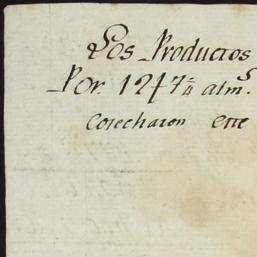 Los Productos
Por. 1247 alm.s
Cosecharon este